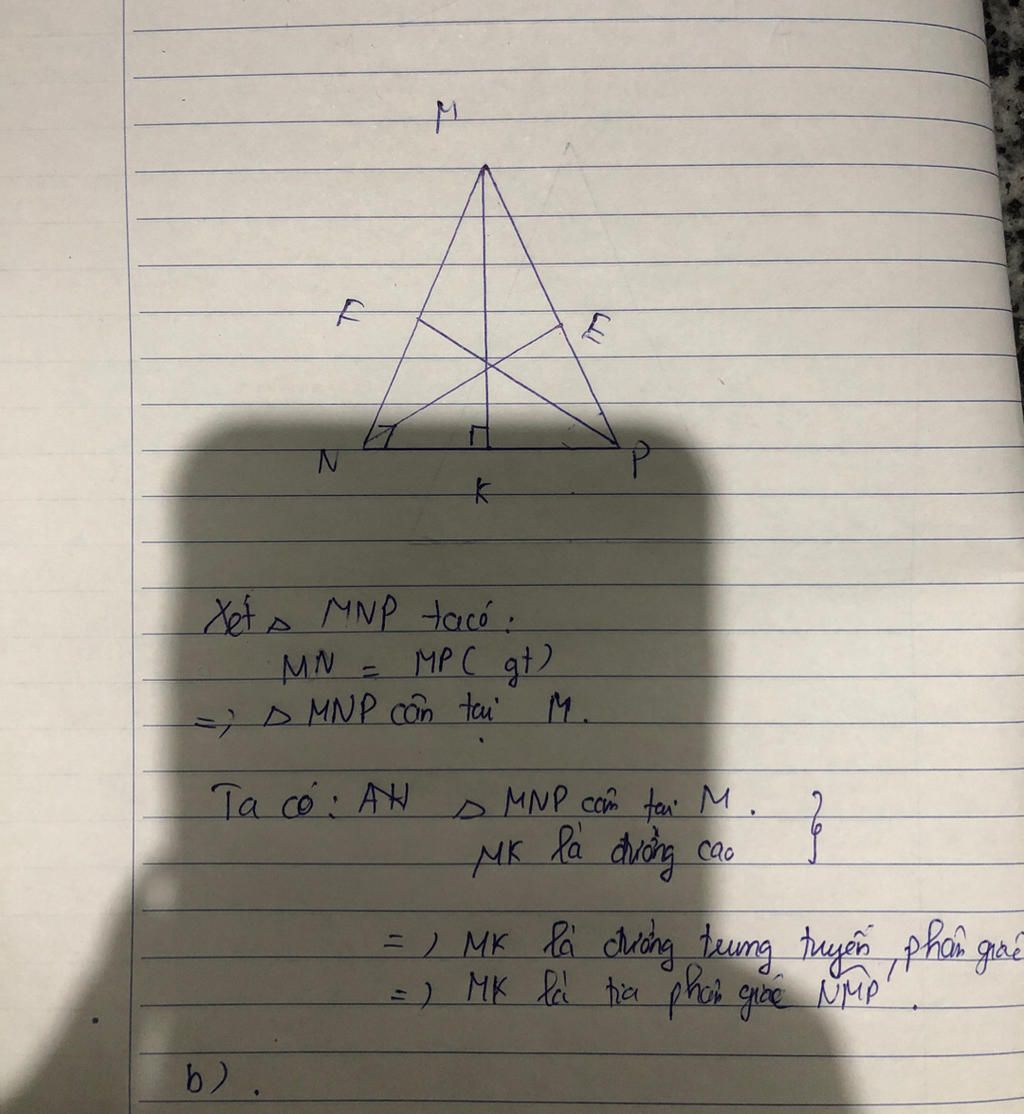 M
F
E
N
P
K
Xét △ MNP ta có:
MN = MP ( gt)
=> △ MNP cân tại M.
Ta có: △ MNP cân tại M.
MK là đường cao
=> MK là đường trung tuyến, phân giác
=> MK là tia phân giác NMP.
b).